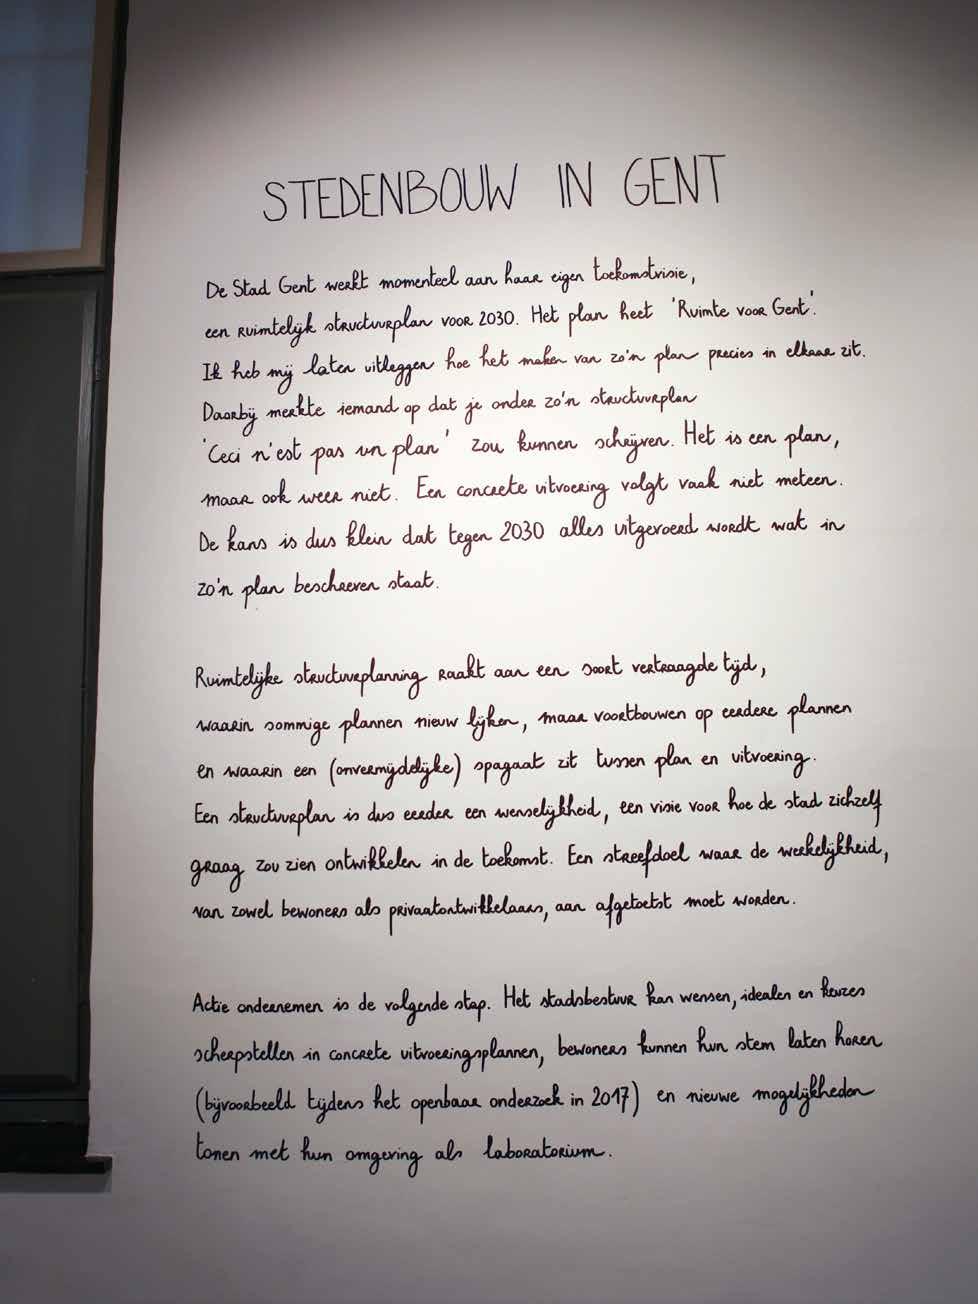 STEDENBOUW IN GENT
De Stad Gent werkt momenteel aan haar eigen toekomstvisie,
een ruimtelijk structuurplan voor 2030. Het plan heet 'Ruimte voor Gent'.
Ik heb mij laten uitleggen hoe het maken van zo'n plan precies in elkaar zit.
Daarbij merkte iemand op dat je onder zo'n structuurplan
'Ceci n'est pas un plan' zou kunnen schrijven. Het is een plan,
maar ook weer niet. Een concrete uitvoering volgt vaak niet meteen.
De kans is dus klein dat tegen 2030 alles uitgevoerd wordt wat in
zo'n plan beschreven staat.
Ruimtelijke structuurplanning raakt aan een soort vertraagde tijd,
waarin sommige plannen nieuw lijken, maar voortbouwen op eerdere plannen
en waarin een (onvermijdelijke) spagaat zit tussen plan en uitvoering.
Een structuurplan is dus eerder een wenselijkheid, een visie voor hoe de stad zichzelf
graag zou zien ontwikkelen in de toekomst. Een streefdoel waar de werkelijkheid,
van zowel bewoners als privaatontwikkelaars, aan afgetoetst moet worden.
Actie ondernemen is de volgende stap. Het stadsbestuur kan wensen, idealen en keuzes
scherpstellen in concrete uitvoeringsplannen, bewoners kunnen hun stem laten horen
(bijvoorbeeld tijdens het openbaar onderzoek in 2017) en nieuwe mogelijkheden
tonen met hun omgeving als laboratorium.